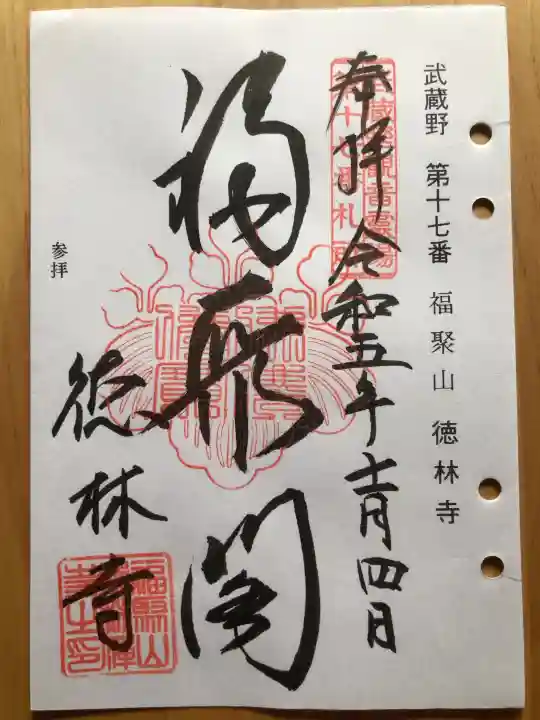 武蔵野 第十七番 福聚山 徳林寺
奉拝 令和五年十一月四日
福聚閣
徳林寺
参拝